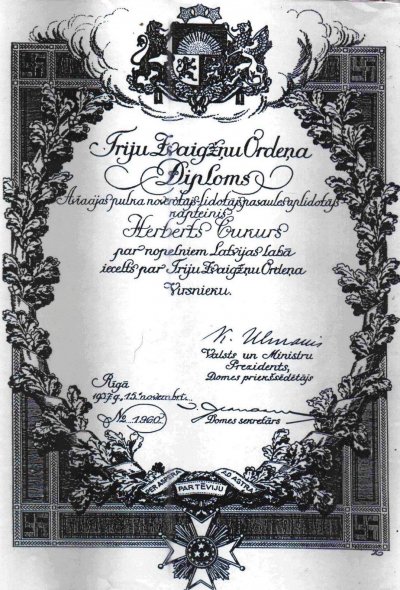 Triju Zvaigžņu Ordeņa
Diploms
Aviācijas pulka novērotājs-lidotājs, pasaules aplidotājs
kapteinis
Herberts Cukurs
par nopelniem Latvijas labā
iecelts par Triju Zvaigžņu Ordeņa
Virsnieku.
K. Ulmanis
Valsts un Ministru
Prezidents,
Domes priekšsēdētājs
Rīgā
1937.g. 15. novembrī.
№ 1960
Domes sekretārs
PER ASPERA AD ASTRA
PAR TĒVIJU